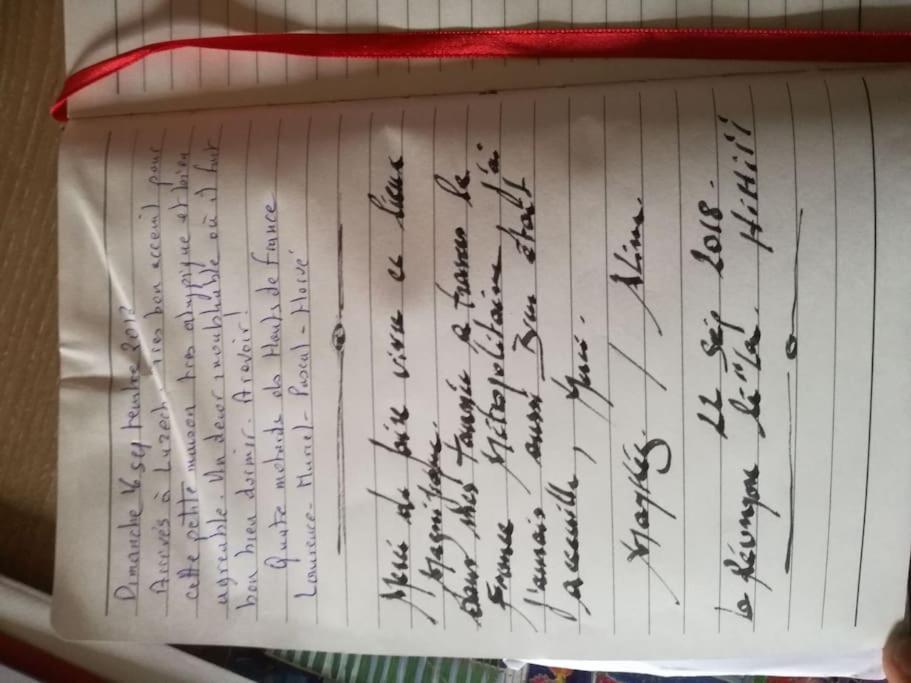 Dimanche 16 septembre 2018
Arrivés à Luzech, très bon acceuil pour
cette petite maison très atypique et bien
agréable. Un decor inoubliable où il fait
bon bien dormir. A revoir!
Quatre motards des Hauts de France
Laurence - Muriel - Pascal - Hervé
Merci de faire vivre ce lieux
Magnifique.
Dans Mes tournée a travers la
France Métropolitaine
J'amais aussi Bien était
accueillie, Merci.
/ Aline.
22 Sep 2018.
la Réunion là Hihiii